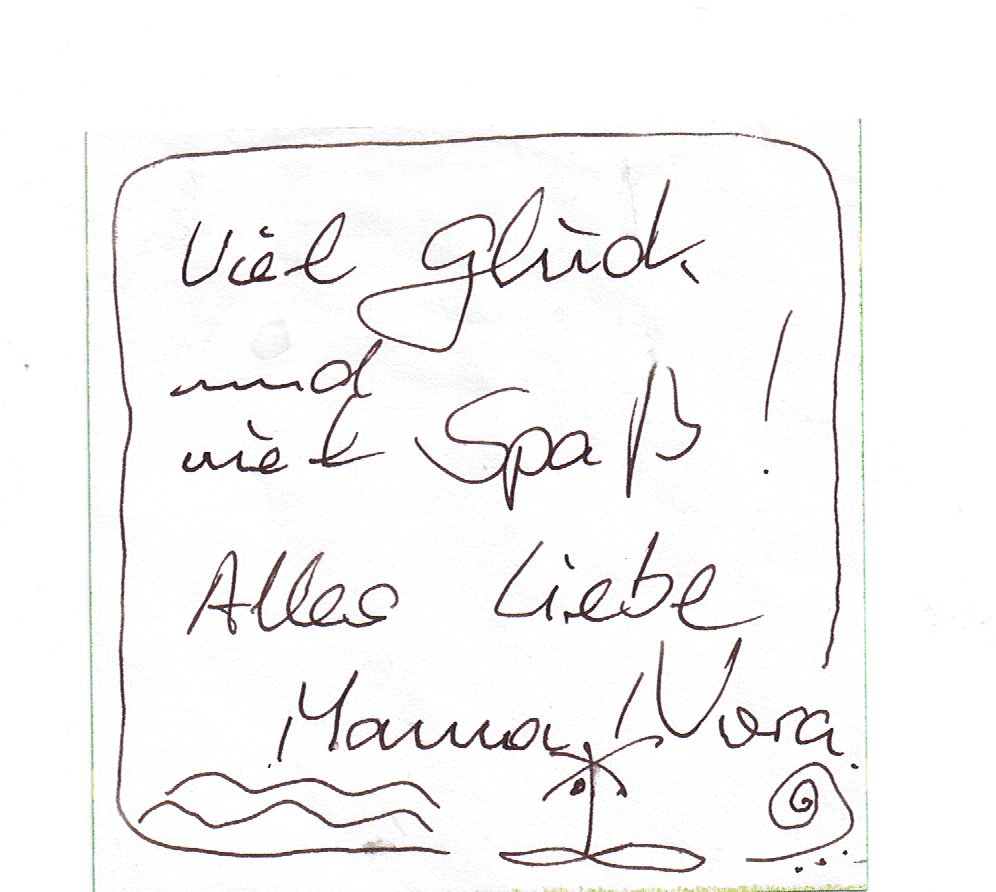 Viel Glück
und
viel Spaß!
Alles Liebe
Mama, Nora